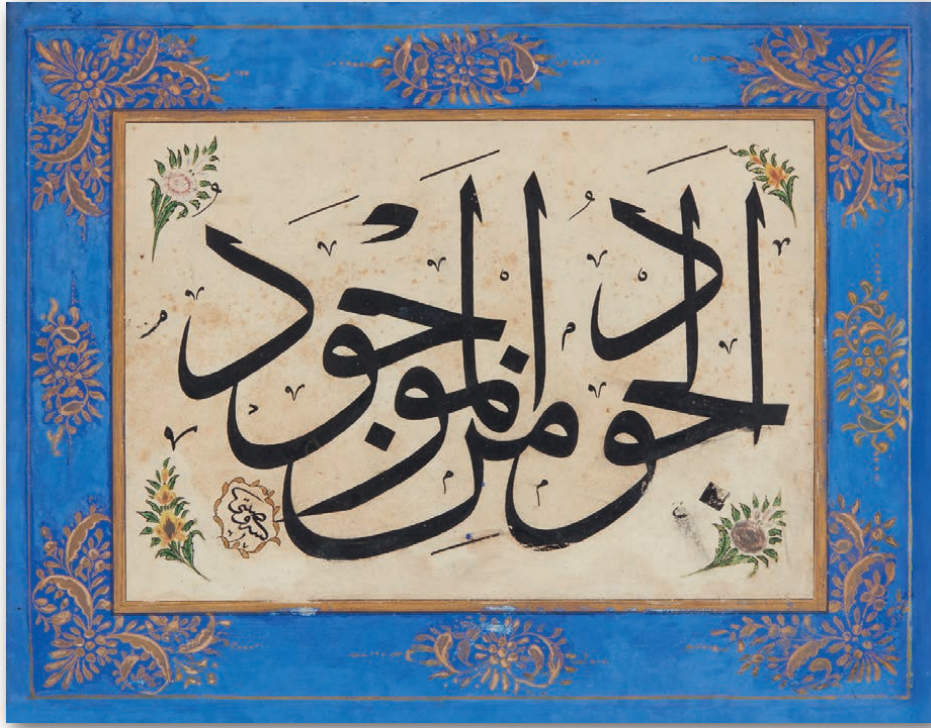 الجود من الموجود